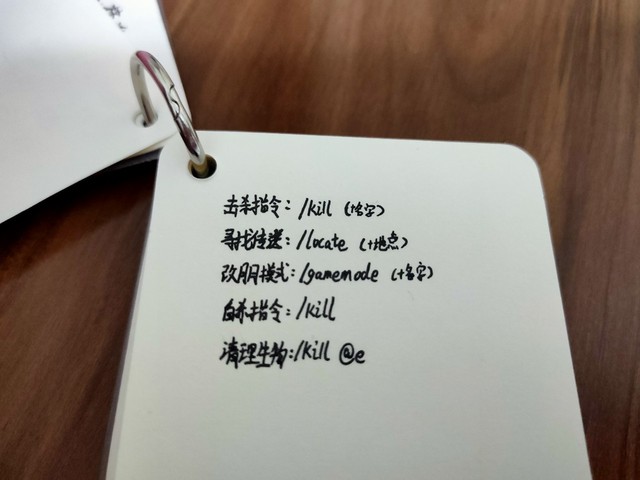 击杀指令：/kill（+名字）
寻找传送：/locate（+地点）
改朋模式：/gamemode（+名字）
自杀指令：/kill
清理生物：/kill @e